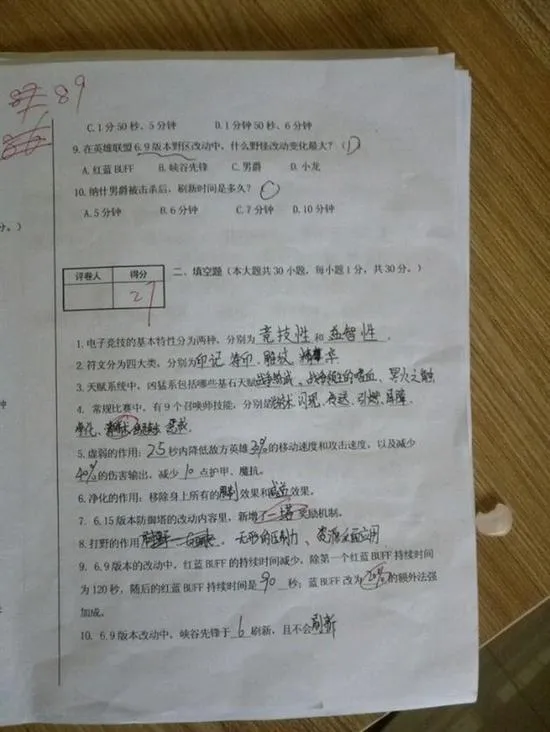 89
C.1分50秒、5分钟 D.1分钟50秒、6分钟
9.在英雄联盟6.9版本野区改动中，什么野怪改动变化最大？（D）
A.红蓝BUFF B.峡谷先锋 C.男爵 D.小龙
10.纳什男爵被击杀后，刷新时间是多久？
A.5分钟 B.6分钟 C.7分钟 D.10分钟
分。）
评卷人 得分
27
二、填空题（本大题共30小题，每小题1分，共30分。）
1.电子竞技的基本特性分为两种，分别为竞技性和益智性。
2.符文分为四大类，分别为印记 符印、雕纹 精华
3.天赋系统中，凶猛系包括哪些基石天赋战争热诚、战争领主的嗜血、死火之触
4.常规比赛中，有9个召唤师技能，分别是治疗术 闪现、传送、引燃、屏障、
净化、
5.虚弱的作用：2.5秒内降低敌方英雄30%的移动速度和攻击速度，以及减少
40%的伤害输出，减少10点护甲、魔抗。
6.净化的作用：移除身上所有的限制效果和减益效果。
7.6.15版本防御塔的改动内容里，新增了一塔奖励机制。
8.打野的作用 无形的压制力、资源
9.6.9版本的改动中，红蓝BUFF的持续时间减少，除第一个红蓝BUFF持续时间
为120秒，随后的红蓝BUFF持续时间是90秒；蓝BUFF改为20%的额外法强
加成。
10.6.9版本改动中，峡谷先锋于6刷新，且不会刷新
钟